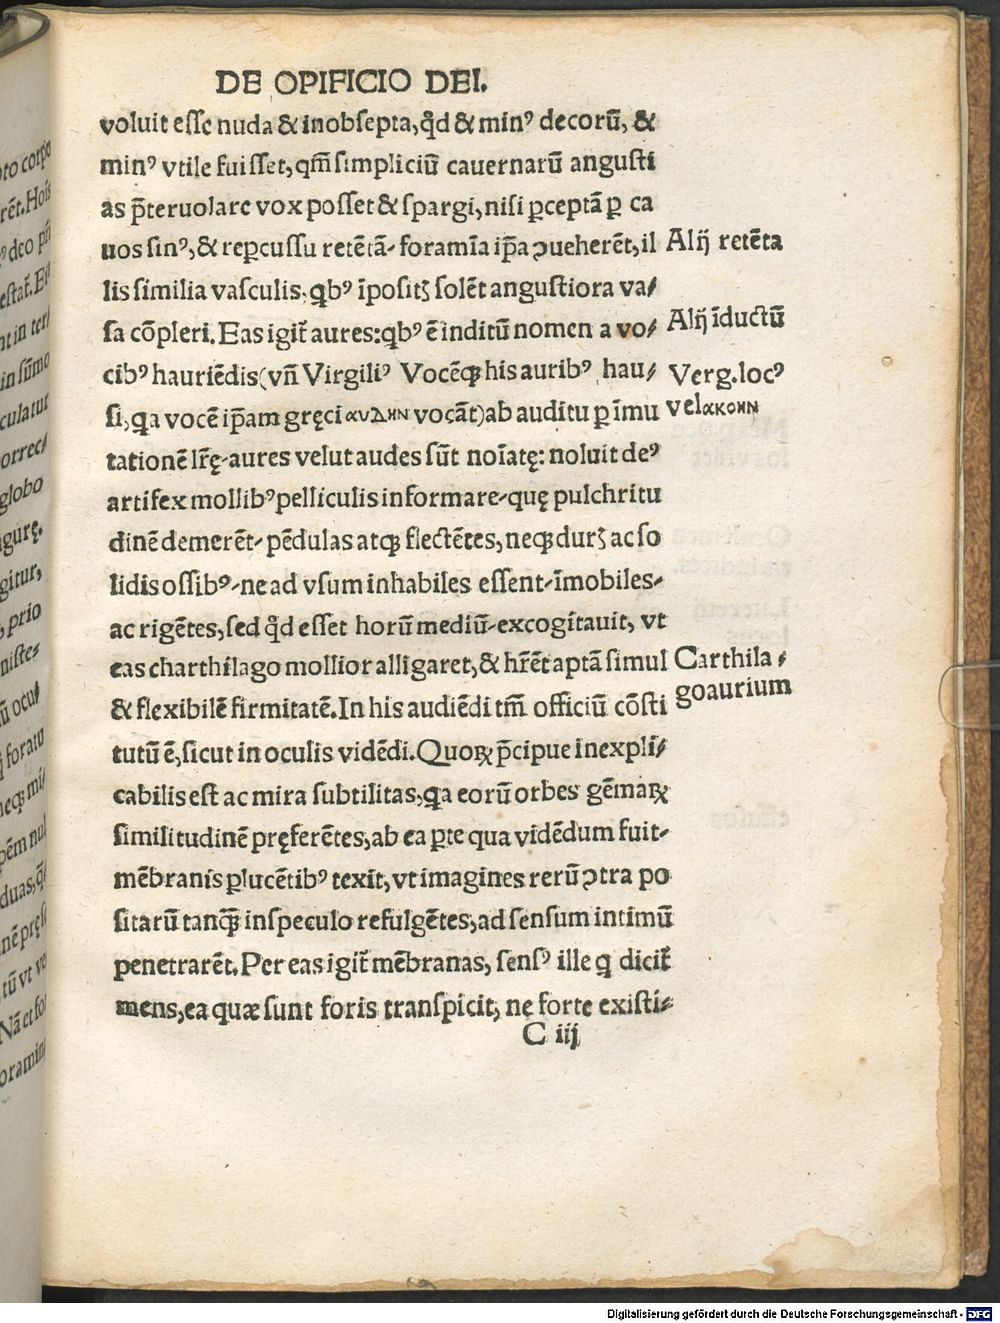 DE OPIFICIO DEI.
voluit esse nuda & inobsepta, qđ & minꝰ decorū, &
minꝰ vtile fuisset, qm̄ simpliciū cauernarū angusti
as p̄teruolare vox posset & spargi, nisi ꝑceptā ꝑ ca
uos sinꝰ, & reꝑcussu retētā- foramīa ip̄a ↄueherēt, il
Alij retēta
lis similia vasculis, qbꝰ īpositꝫ solēt angustiora va/
sa cōpleri. Eas igit̄ aures: qbꝰ ē inditū nomen a vo/
Alij īductū
cibꝰ hauriēdis (vn̄ Virgiliꝰ Vocēqꝫ his auribꝰ hau/
Verg. locꝰ
si, qa vocē ip̄am gręci ΑΥΔΗΝ vocāt) ab auditu ꝑ īmu
vel ακοΗΝ
tationē lr̄ę- aures velut audes sūt noīatę: noluit deꝰ
artifex mollibꝰ pelliculis informare- quę pulchritu
dinē demerēt- pēdulas atqꝫ flectētes, neqꝫ durꝫ ac so
lidis ossibꝰ- ne ad vsum inhabiles essent- īmobiles-
ac rigētes, sed qđ esset horū mediū- excogitauit, vt
eas charthilago mollior alligaret, & hr̄ēt aptā simul
Carthila/
& flexibilē firmitatē. In his audiēdi tm̄ officiū cōsti
go aurium
tutū ē, sicut in oculis vidēdi. Quoꝝ p̄cipue inexpli/
cabilis est ac mira subtilitas, qa eorū orbes gēmaꝝ
similitudinē pręferētes, ab ea ꝑte qua vidēdum fuit-
mēbranis ꝑlucētibꝰ texit, vt imagines rerū ↄtra po
sitarū tanqꝫ̄ in speculo refulgētes, ad sensum intimū
penetrarēt. Per eas igit̄ mēbranas, sensꝰ ille q dicit̄
mens, ea quæ sunt foris transpicit, ne forte existi-
C iij
Digitalisierung gefördert durch die Deutsche Forschungsgemeinschaft - DFG